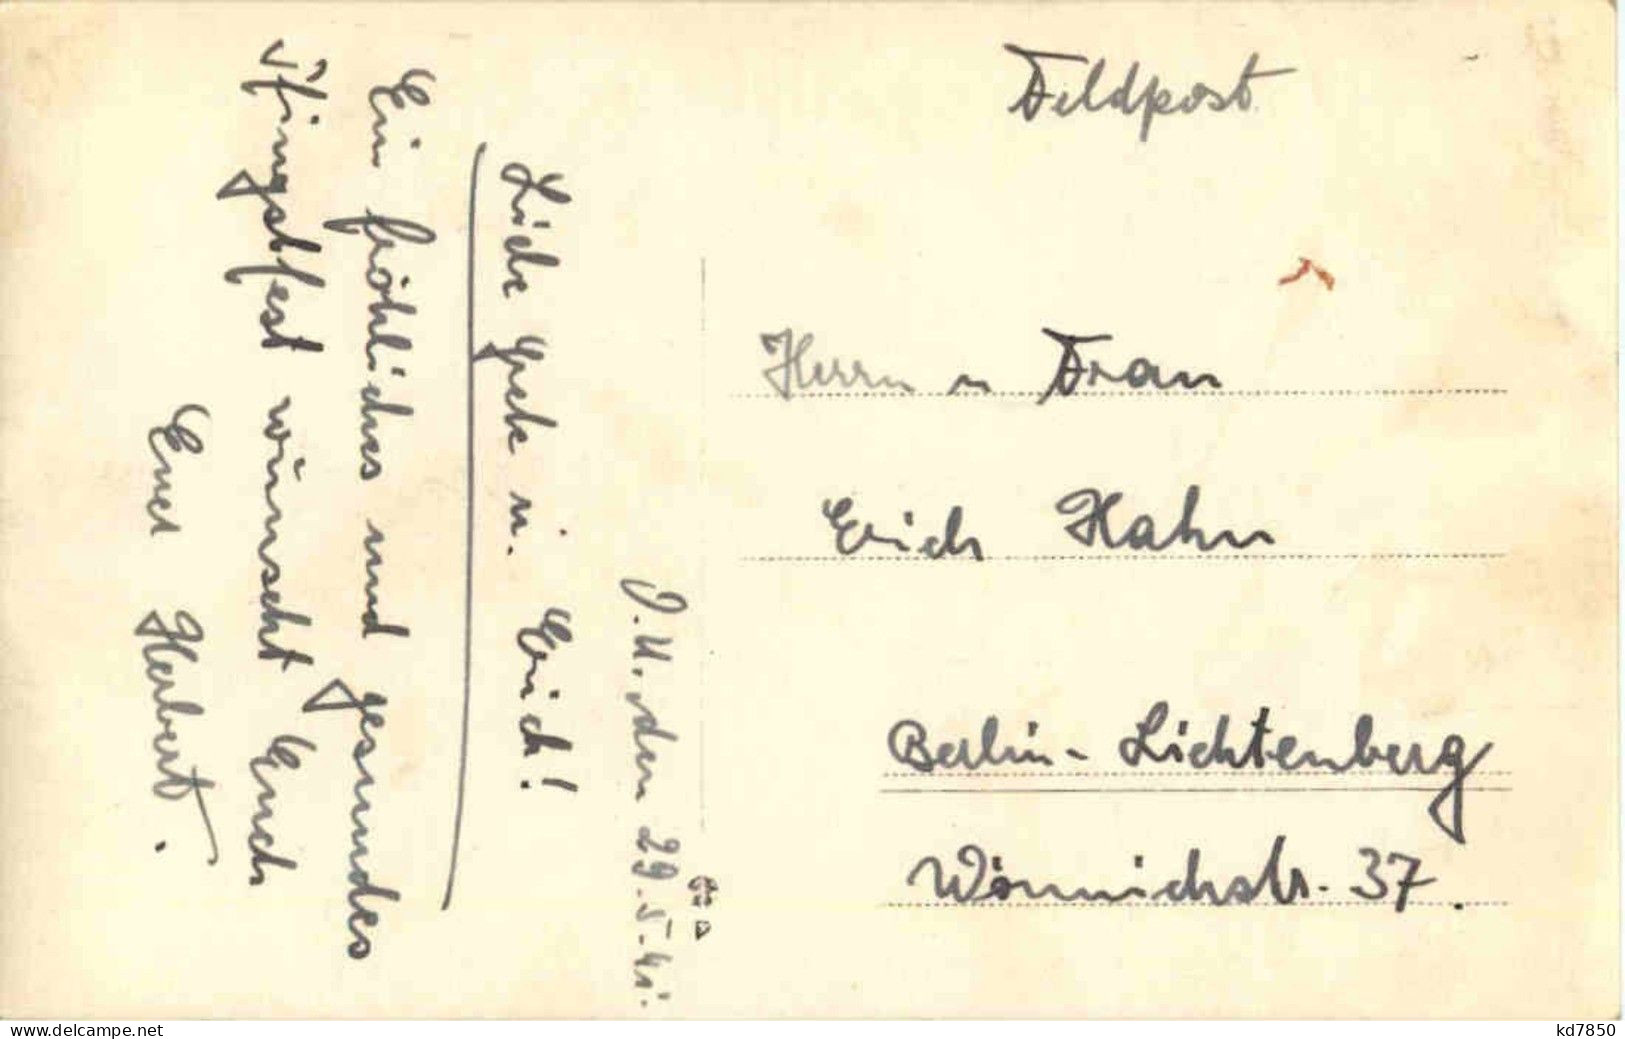 Feldpost
Herrn u Frau
Erich Hahn
Berlin-Lichtenberg
Wönnichstr. 37.
O.U. den 29.5.41.
Liebe Grete u. Erich!
Ein fröhliches und gesundes
Pfingstfest wünscht Euch
Euer Herbert.
www.delcampe.net
kd7850